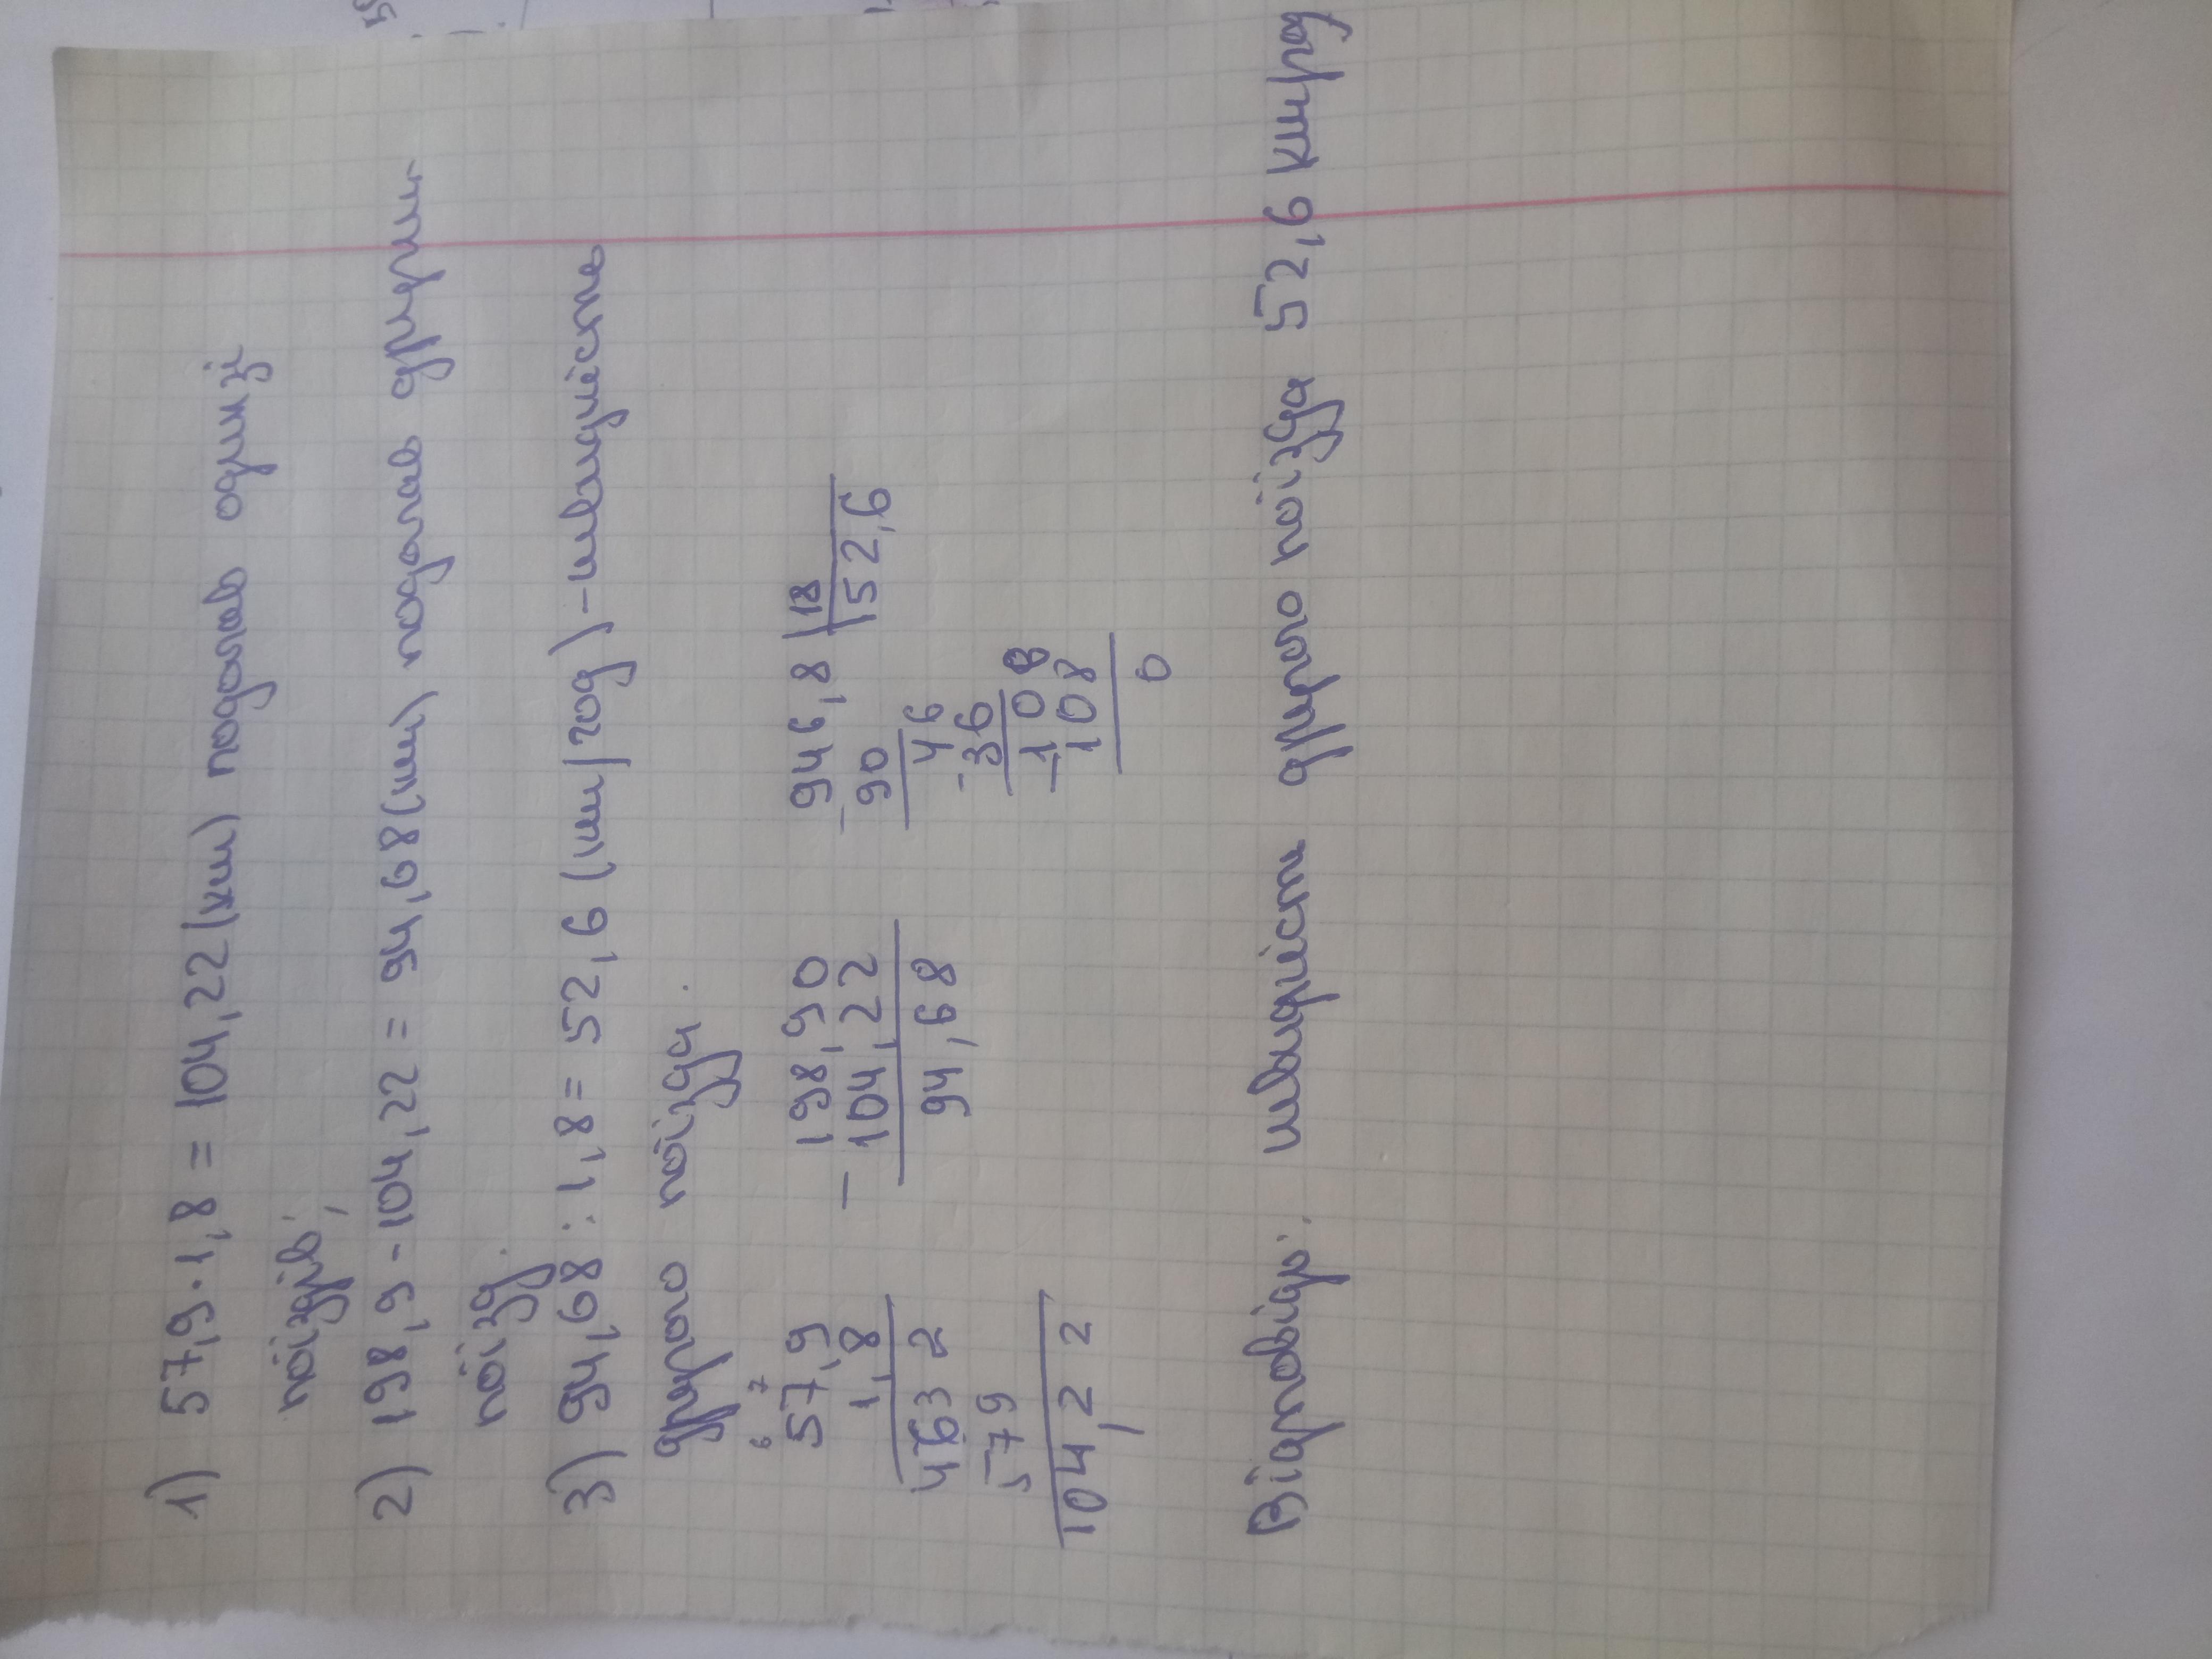 1) 57,9·1,8 = 104,22(км) подолав один із
поїздів;
2) 198,9-104,22 = 94,68(км) подолав другий
поїзд.
3) 94,68 : 1,8 = 52,6 (км/год) - швидкість
другого поїзда.
6 7
57,9
1,8
4632
579
104,22
- 198,90
104,22
94,68
- 946,8 | 18
90 | 52,6
46
- 36
- 108
108
0
Відповідь: швидкість другого поїзда 52,6 км/год